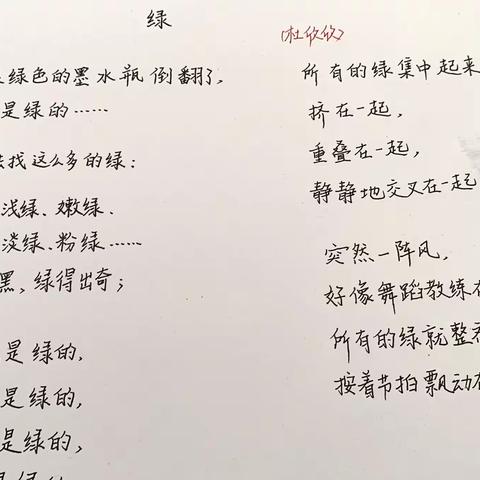 绿
(杜欣欣)
绿色的墨水瓶倒翻了,
是绿的……
找这么多的绿:
浅绿、嫩绿、
淡绿、粉绿……
黑、绿得出奇;
是绿的,
是绿的,
是绿的,
所有的绿集中起来
挤在一起,
重叠在一起,
静静地交叉在一起
突然一阵风,
好像舞蹈教练在
所有的绿就整
按着节拍飘动在